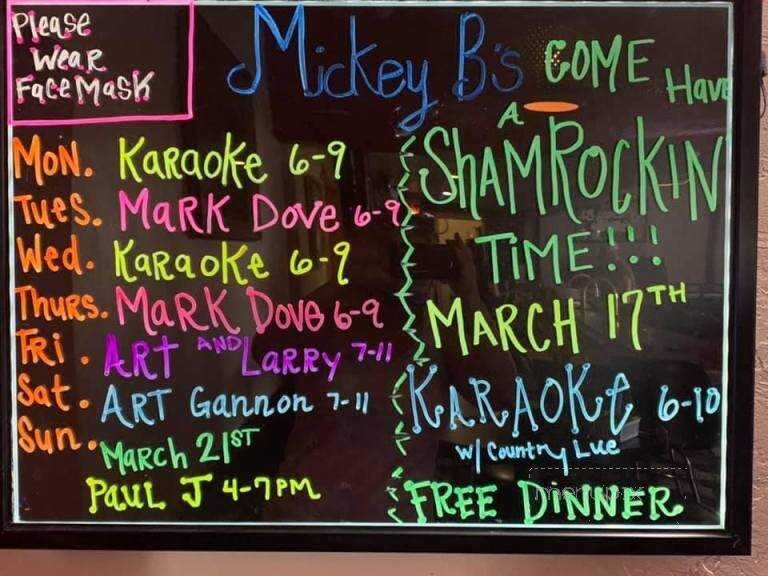 Please
Wear
Face Mask
Mickey B's
Mon. Karaoke 6-9
Tues. Mark Dove 6-9
Wed. Karaoke 6-9
Thurs. Mark Dove 6-9
Fri. Art and Larry 7-11
Sat. Art Gannon 7-11
Sun. March 21st
Paul J 4-7pm
Come Have
A
Shamrockin
Time!!!
March 17th
Karaoke 6-10
w/ Country Lue
Free Dinner